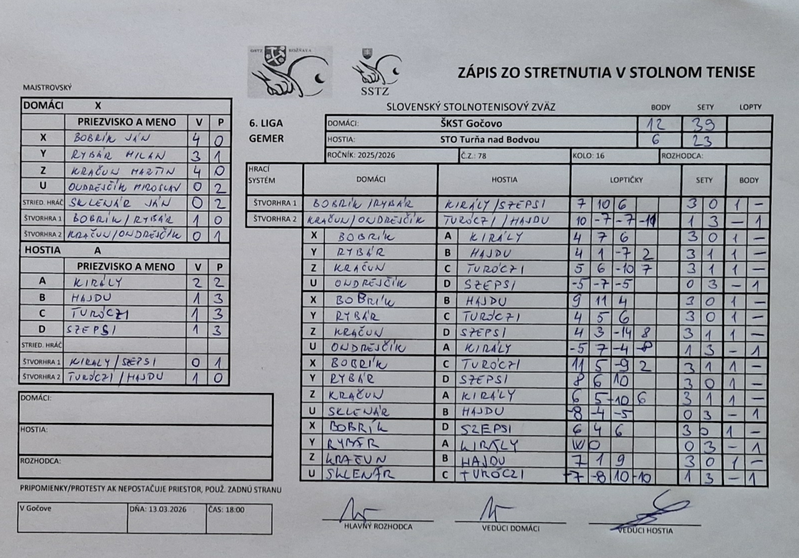 SSTZ BOŠÁCKA
SSTZ
ZÁPIS ZO STRETNUTIA V STOLNOM TENISE
SLOVENSKÝ STOLNOTENISOVÝ ZVÄZ
BODY SETY LOPTY
6. LIGA DOMÁCI: ŠKST Gočovo 12 39
GEMER HOSTIA: STO Turňa nad Bodvou 6 23
ROČNÍK: 2025/2026 Č.Z.: 78 KOLO: 16 ROZHODCA:
MAJSTROVSKÝ
DOMÁCI X
PRIEZVISKO A MENO V P
X BOBRÍK JÁN 4 0
Y RYBÁR MILAN 3 1
Z KRAČUN MARTIN 4 0
U ONDREJČÍK MIROSLAV 0 2
STRIED. HRÁČ SKLENÁR JÁN 0 2
ŠTVORHRA 1 BOBRÍK/RYBÁR 1 0
ŠTVORHRA 2 KRAČUN/ONDREJČÍK 0 1
HOSTIA A
PRIEZVISKO A MENO V P
A KIRÁLY 2 2
B HAJDU 1 3
C TURÓCZI 1 3
D SZEPSI 1 3
STRIED. HRÁČ
ŠTVORHRA 1 KIRÁLY/SZEPSI 0 1
ŠTVORHRA 2 TURÓCZI/HAJDU 1 0
DOMÁCI:
HOSTIA:
ROZHODCA:
HRACÍ SYSTÉM DOMÁCI HOSTIA LOPTIČKY SETY BODY
ŠTVORHRA 1 BOBRÍK/RYBÁR KIRÁLY/SZEPSI 7 10 6 3 0 1 –
ŠTVORHRA 2 KRAČUN/ONDREJČÍK TURÓCZI/HAJDU 10 -7 -7 -11 1 3 – 1
X BOBRÍK A KIRÁLY 4 7 6 3 0 1 –
Y RYBÁR B HAJDU 4 1 -7 2 3 1 1 –
Z KRAČUN C TURÓCZI 5 6 -10 7 3 1 1 –
U ONDREJČÍK D SZEPSI -5 -7 -5 0 3 – 1
X BOBRÍK B HAJDU 9 11 4 3 0 1 –
Y RYBÁR C TURÓCZI 4 5 6 3 0 1 –
Z KRAČUN D SZEPSI 4 3 -14 8 3 1 1 –
U ONDREJČÍK A KIRÁLY -5 7 -4 -8 1 3 – 1
X BOBRÍK C TURÓCZI 11 5 -9 2 3 1 1 –
Y RYBÁR D SZEPSI 8 6 10 3 0 1 –
Z KRAČUN A KIRÁLY 6 5 -10 6 3 1 1 –
U SKLENÁR B HAJDU -8 -4 -5 0 3 – 1
X BOBRÍK D SZEPSI 6 4 6 3 0 1 –
Y RYBÁR A KIRÁLY WO 0 3 – 1
Z KRAČUN B HAJDU 7 1 9 3 0 1 –
U SKLENÁR C TURÓCZI -7 -8 10 -10 1 3 – 1
PRIPOMIENKY/PROTESTY AK NEPOSTAČUJE PRIESTOR, POUŽ. ZADNÚ STRANU
V Gočove DŇA: 13.03.2026 ČAS: 18:00
HLAVNÝ ROZHODCA VEDÚCI DOMÁCI VEDÚCI HOSTIA